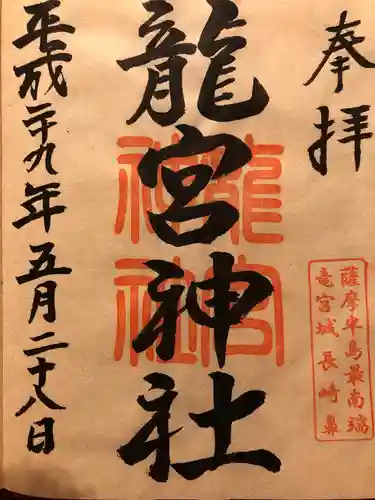 奉拝
龍宮神社
龍宮
神社
薩摩半島最南端
竜宮城長崎鼻
平成二十九年五月二十八日